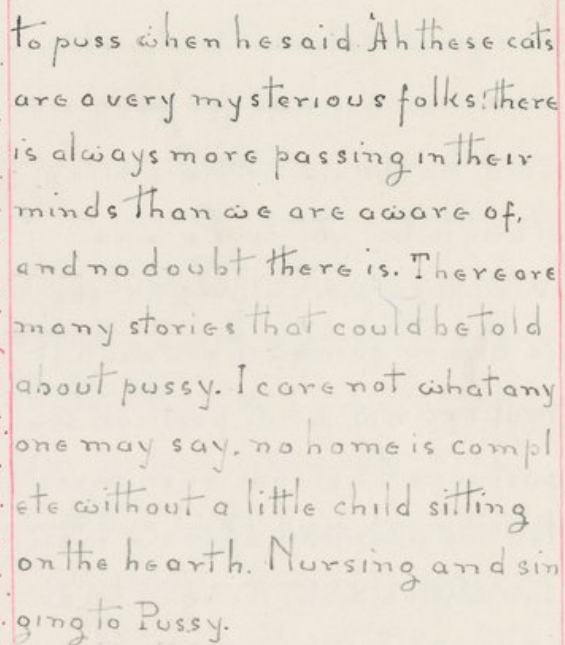 to puss when he said. 'Ah these cats
are a very mysterious folks: there
is always more passing in their
minds than we are aware of,
and no doubt there is. There are
many stories that could be told
about pussy. I care not what any
one may say, no home is compl
ete without a little child sitting
on the hearth. Nursing and sin
ging to Pussy.